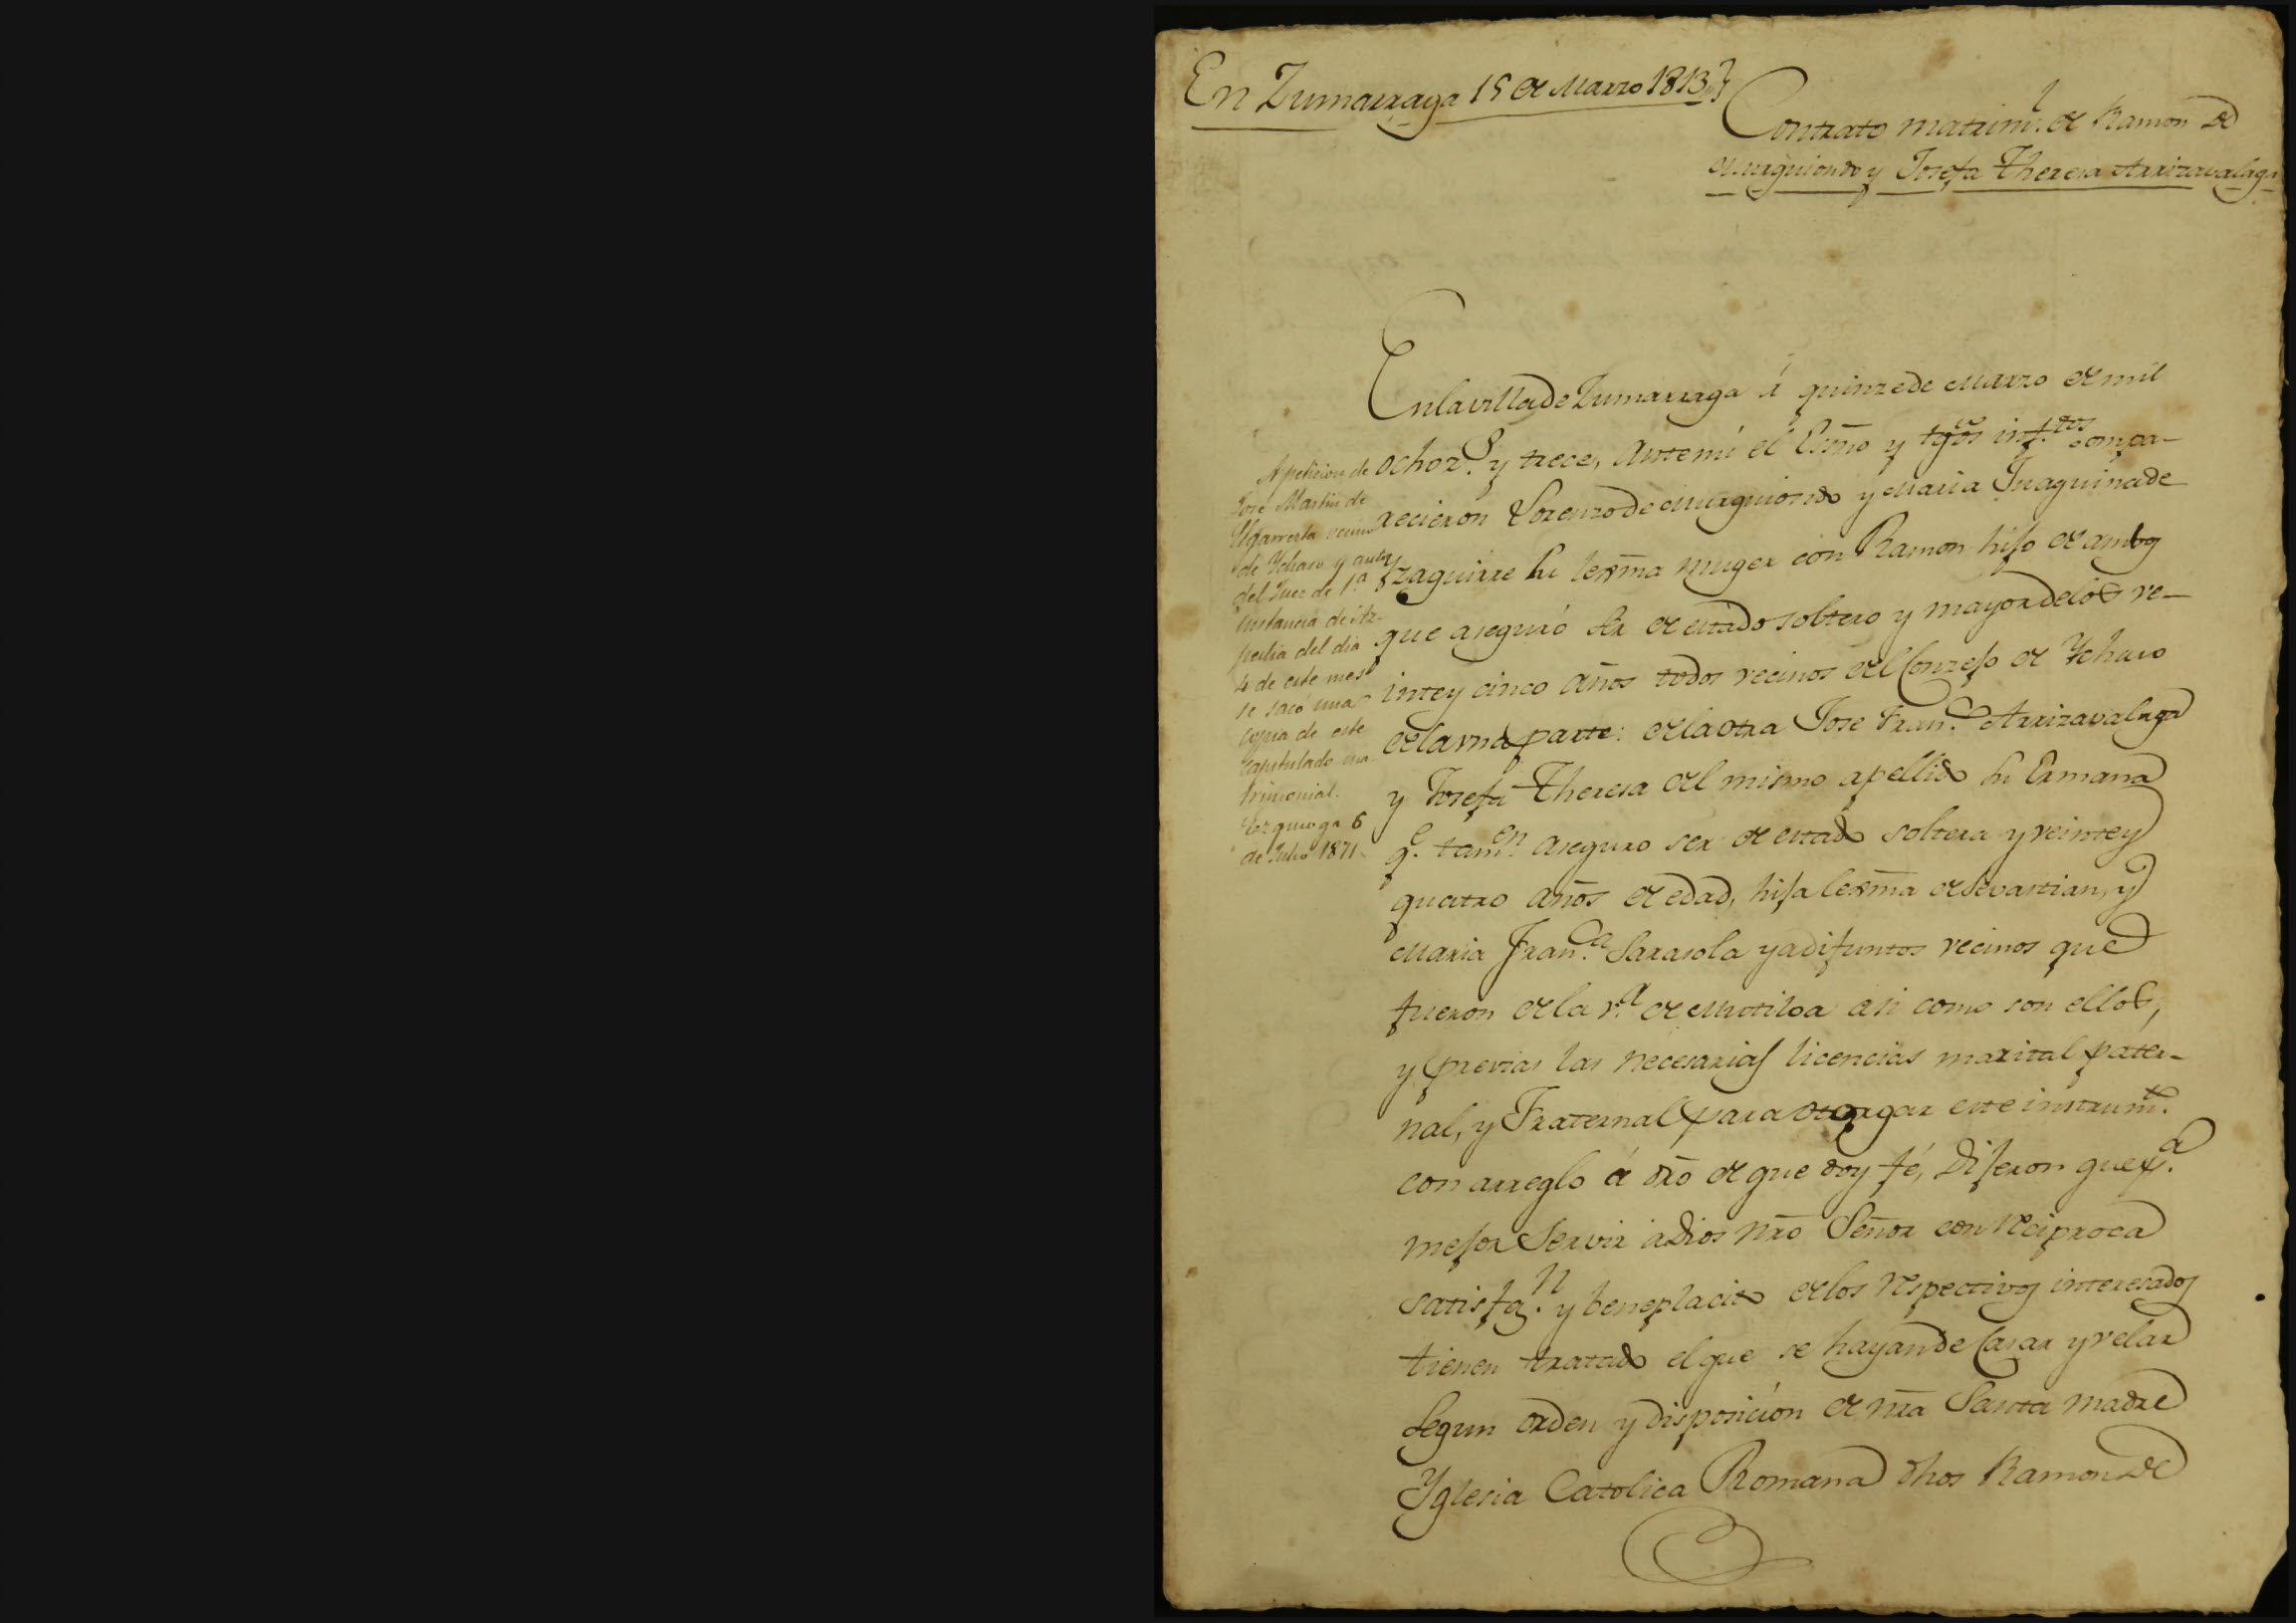 En Zumarraga 15 de Marzo 1813
Contrato matrim.l de Ramon de
Murguiondo y Josefa Theresa Arrizavalaga
En la villa de Zumarraga á quinze de Marzo de mil
ochoz.s y trece, ante mi el Esno y tgos inf.tos compa-
recieron Lorenzo de Murguiondo y Maria Juaquina de
Yzaguirre su lexma muger con Ramon hijo de ambos
que aseguró ser de estado soltero y mayor de los ve-
inte y cinco años todos vecinos del Conzejo de Ychaso
de la vna parte: de la otra Jose Fran.co Arrizavalaga
y Josefa Theresa del mismo apellido su Ermana
q.e tam.en aseguro ser de estado soltera y veinte y
quatro años de edad, hija lexma de Sevastian, y
Maria Fran.ca Sarasola ya difuntos vecinos que
fueron de la v.a de Mutiloa asi como son ellos,
y previas las necesarias licencias marital pater-
nal, y Fraternal para otorgar este instrum.to
con arreglo á dro de que doy fé, Dijeron que p.a
mejor Servir a Dios nro Señor con reciproca
satisfa.n y beneplacito de los respectivos interesados
tienen tratado el que se hayan de Casar y velar
segun orden y disposición de nra Santa madre
Yglesia Catolica Romana dhos Ramon de
A peticion de
José Martin de
Ugarrerta vecino
de Ychaso y auto
del Juez de 1.a
instancia de Az-
peitia del dia
4 de este mes
se sacó una
copia de este
capitulado ma-
trimonial.
Ezquioga 6
de Julio 1871.